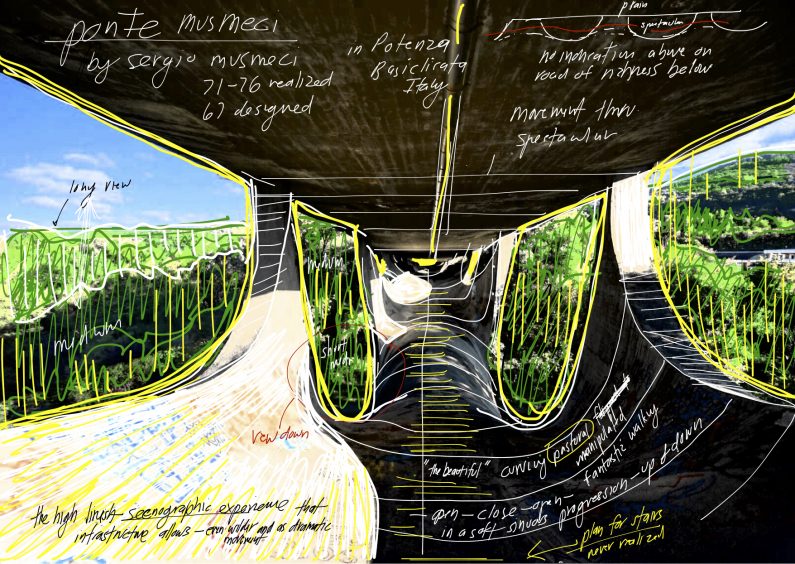 ponte musmeci
by sergio musmeci
71-76 realized
67 designed
in Potenza
Basiclicata
Italy
plain
spectacular
no indication above on
road of richness below
movement thru
spectacular
long view
medium
medium
short
view down
"the beautiful" curving pastoral
manipulated
fantastic walking
open - close - open -
in a soft sinuous progression - up & down
plan for stairs
never realized
the high line's scenographic experience that
infrastructure allows - even wilder and as dramatic
movement